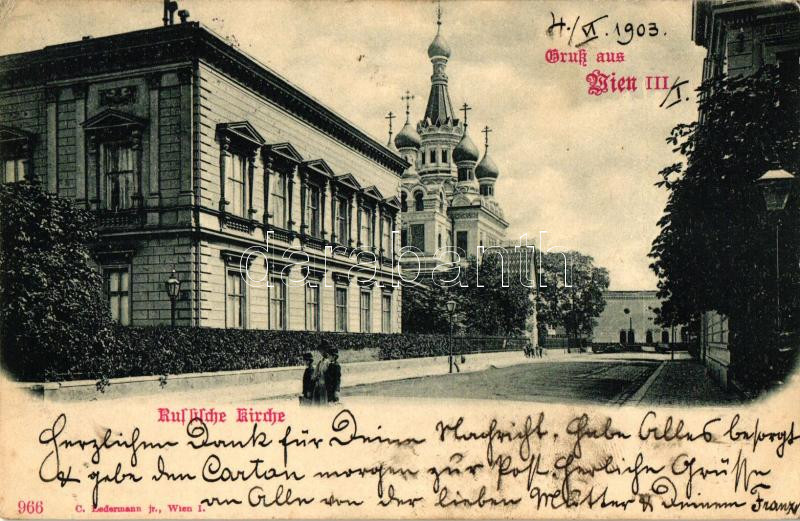 4./VI. 1903.
Gruß aus
Wien III/I.
darabanth
Russische Kirche
Herzlichen Dank für Deine Nachricht. Habe Alles besorgt
& gebe den Carton morgen zur Post. Herliche Grüsse
an Alle von der lieben Mutter & Deinem Franz
966 C. Ledermann jr., Wien I.